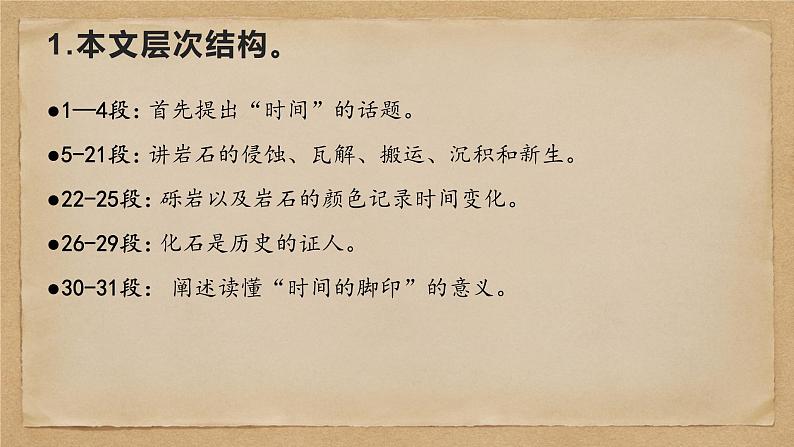 1.本文层次结构。
●1—4段：首先提出“时间”的话题。
●5-21段：讲岩石的侵蚀、瓦解、搬运、沉积和新生。
●22-25段：砾岩以及岩石的颜色记录时间变化。
●26-29段：化石是历史的证人。
●30-31段： 阐述读懂“时间的脚印”的意义。